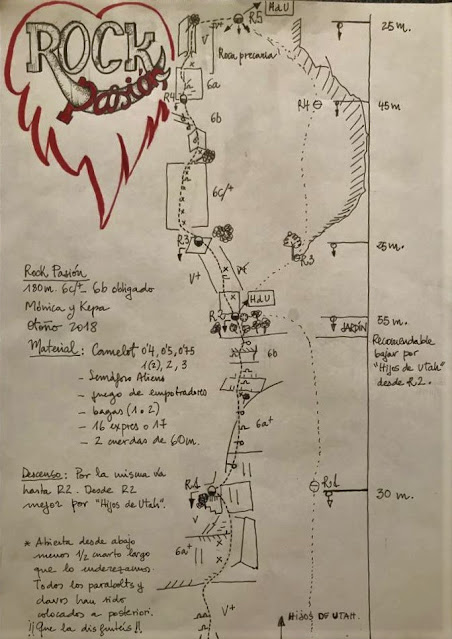 ROCK
Pasión
HdU
R5
25 m.
V
Roca precaria
6a
R4
R4
45 m
6b
6c/+
R3
R3
25 m.
V+
V+
HdU
R2
55 m.
JARDÍN
6b
Recomendable
bajar por
"Hijos de Utah"
desde R2.
Rock Pasión
180 m. 6c/+ 6b obligado
Mónica y Kepa
Otoño 2018
Material: Camelot 0'4, 0'5, 0'75
1(2), 2, 3
- Semáforo Aliens
- juego de empotradores
- bagas (1 o 2)
- 16 expres o 17
- 2 cuerdas de 60 m.
6a+
Descenso: Por la misma vía
hasta R2. Desde R2
mejor por "Hijos de Utah".
R1
R1
30 m.
V
6a+
* Abierta desde abajo
menos 1/2 cuarto largo
que lo enderezamos.
Todos los parabolts y
clavos han sido
colocados a posteriori.
¡¡Que la disfrutéis!!
V+
HIJOS DE UTAH.